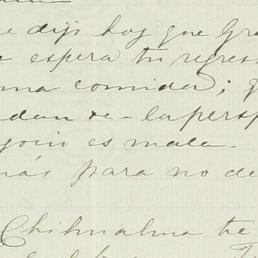 e dijo hoy que Gra
e espera tu regres
ma comida; q
dan de-la persp
gocio es mala.
más para no de
Chihualma te